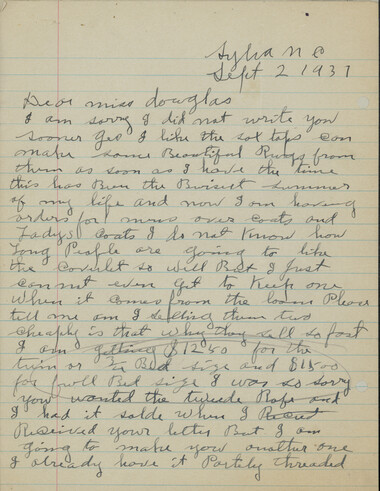 Sylva N C
Sept 2 1937
Dear miss douglas
I am sorry I did not write you
sooner yes I like the sox tops can
make some Beautiful Rugs from
them as soon as I have the time
this has Bun the Buisest summer
of my life and now I am having
orders for mens over coats and
Ladys coats I do not Know how
Long People are going to like
the so will But I Just
can not even get to Keep one
when it comes from the loom Please
tell me am I selling them two
cheaply is that why they sell so fast
I am getting $1250 for the
twin or Bed size and $1500
for full Bed size I was so sorry
you wanted the and
I had it solde when I
Received your letter But I am
going to make you another one
I already have it Partily threaded